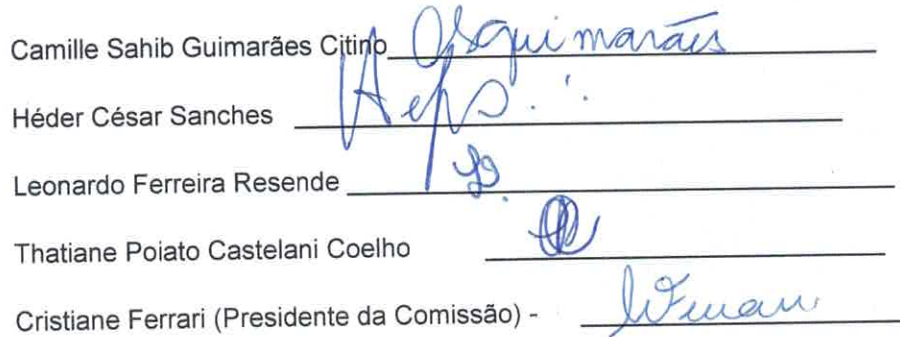 Camille Sahib Guimarães Citino Guimarães
Héder César Sanches
Leonardo Ferreira Resende
Thatiane Poiato Castelani Coelho
Cristiane Ferrari (Presidente da Comissão) -